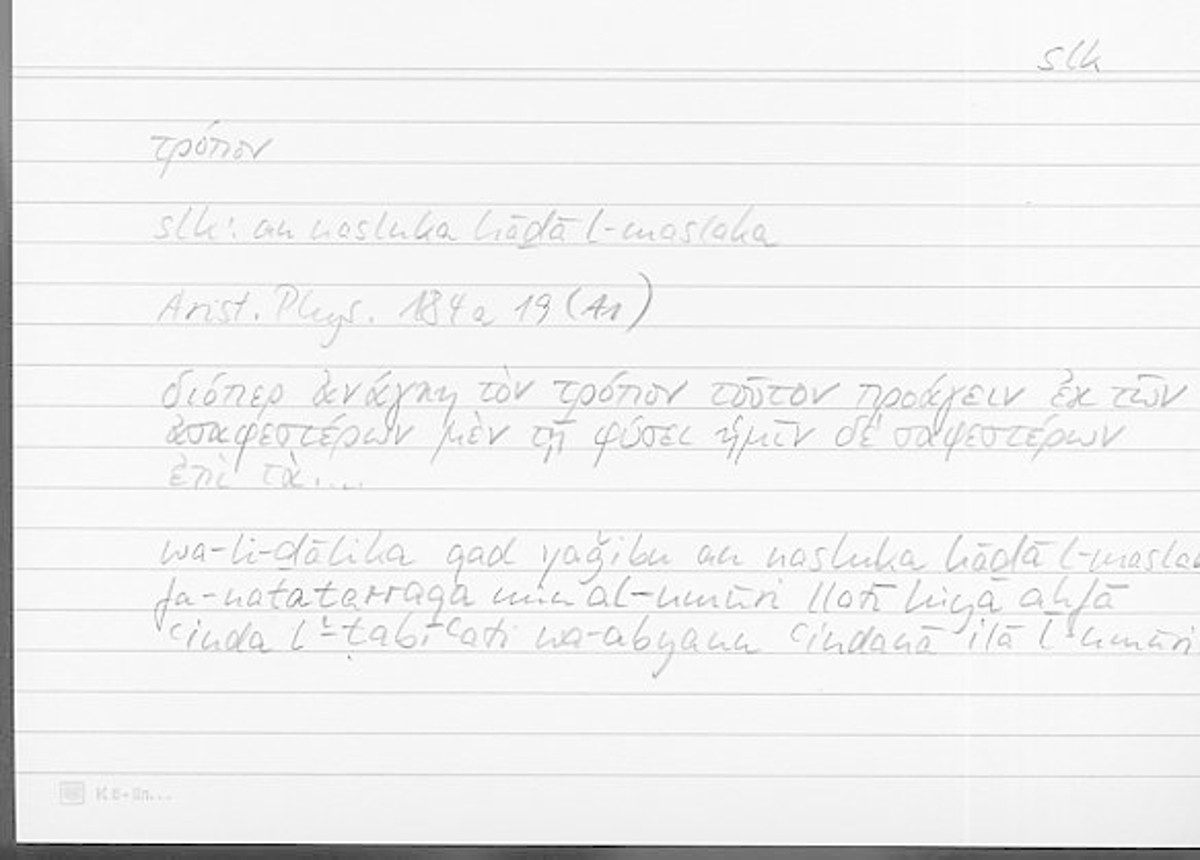 slk
τρόπον
slk: an nasluka hāḏā l-maslaka
Arist. Phys. 184a 19 (A1)
διόπερ ἀνάγκη τὸν τρόπον τοῦτον προάγειν ἐκ τῶν
ἀσαφεστέρων μὲν τῇ φύσει ἡμῖν δὲ σαφεστέρων
ἐπὶ τὰ....
wa-li-ḏālika qad yaǧibu an nasluka hāḏā l-maslak
fa-natatarraqa min al-umūri llatī hiya aḫfā
ʿinda l-ṭabīʿati wa-abyanu ʿindanā ilā l-umūri